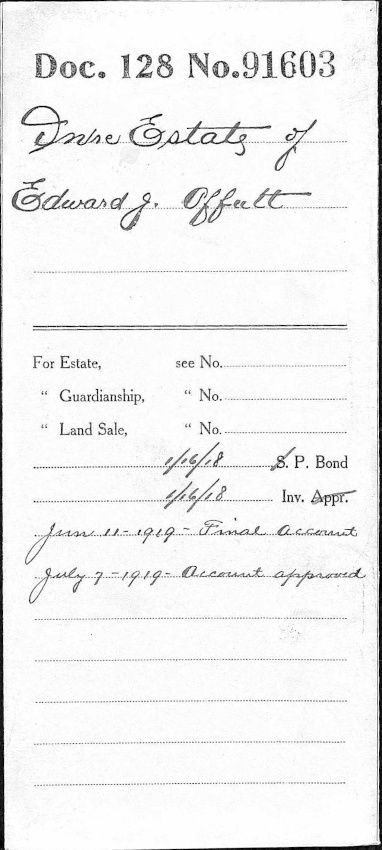 Doc. 128 No. 91603
In re Estate of
Edward J. Offutt
For Estate, see No.
" Guardianship, " No.
" Land Sale, " No.
1/16/18 S. P. Bond
1/16/18 Inv. Appr.
June 11-1919- Final Account
July 7-1919- Account approved